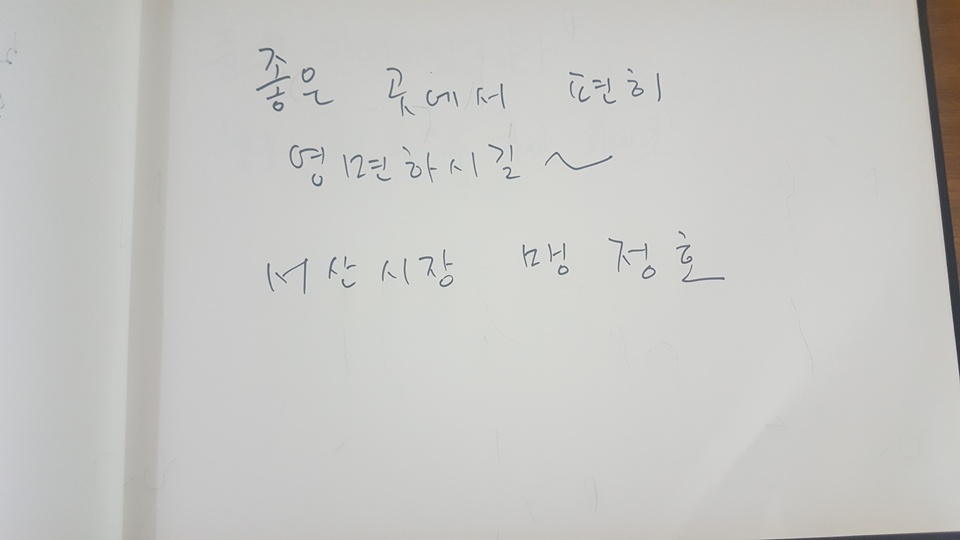 좋은 곳에서 편히
영면하시길~
서산시장 맹정호